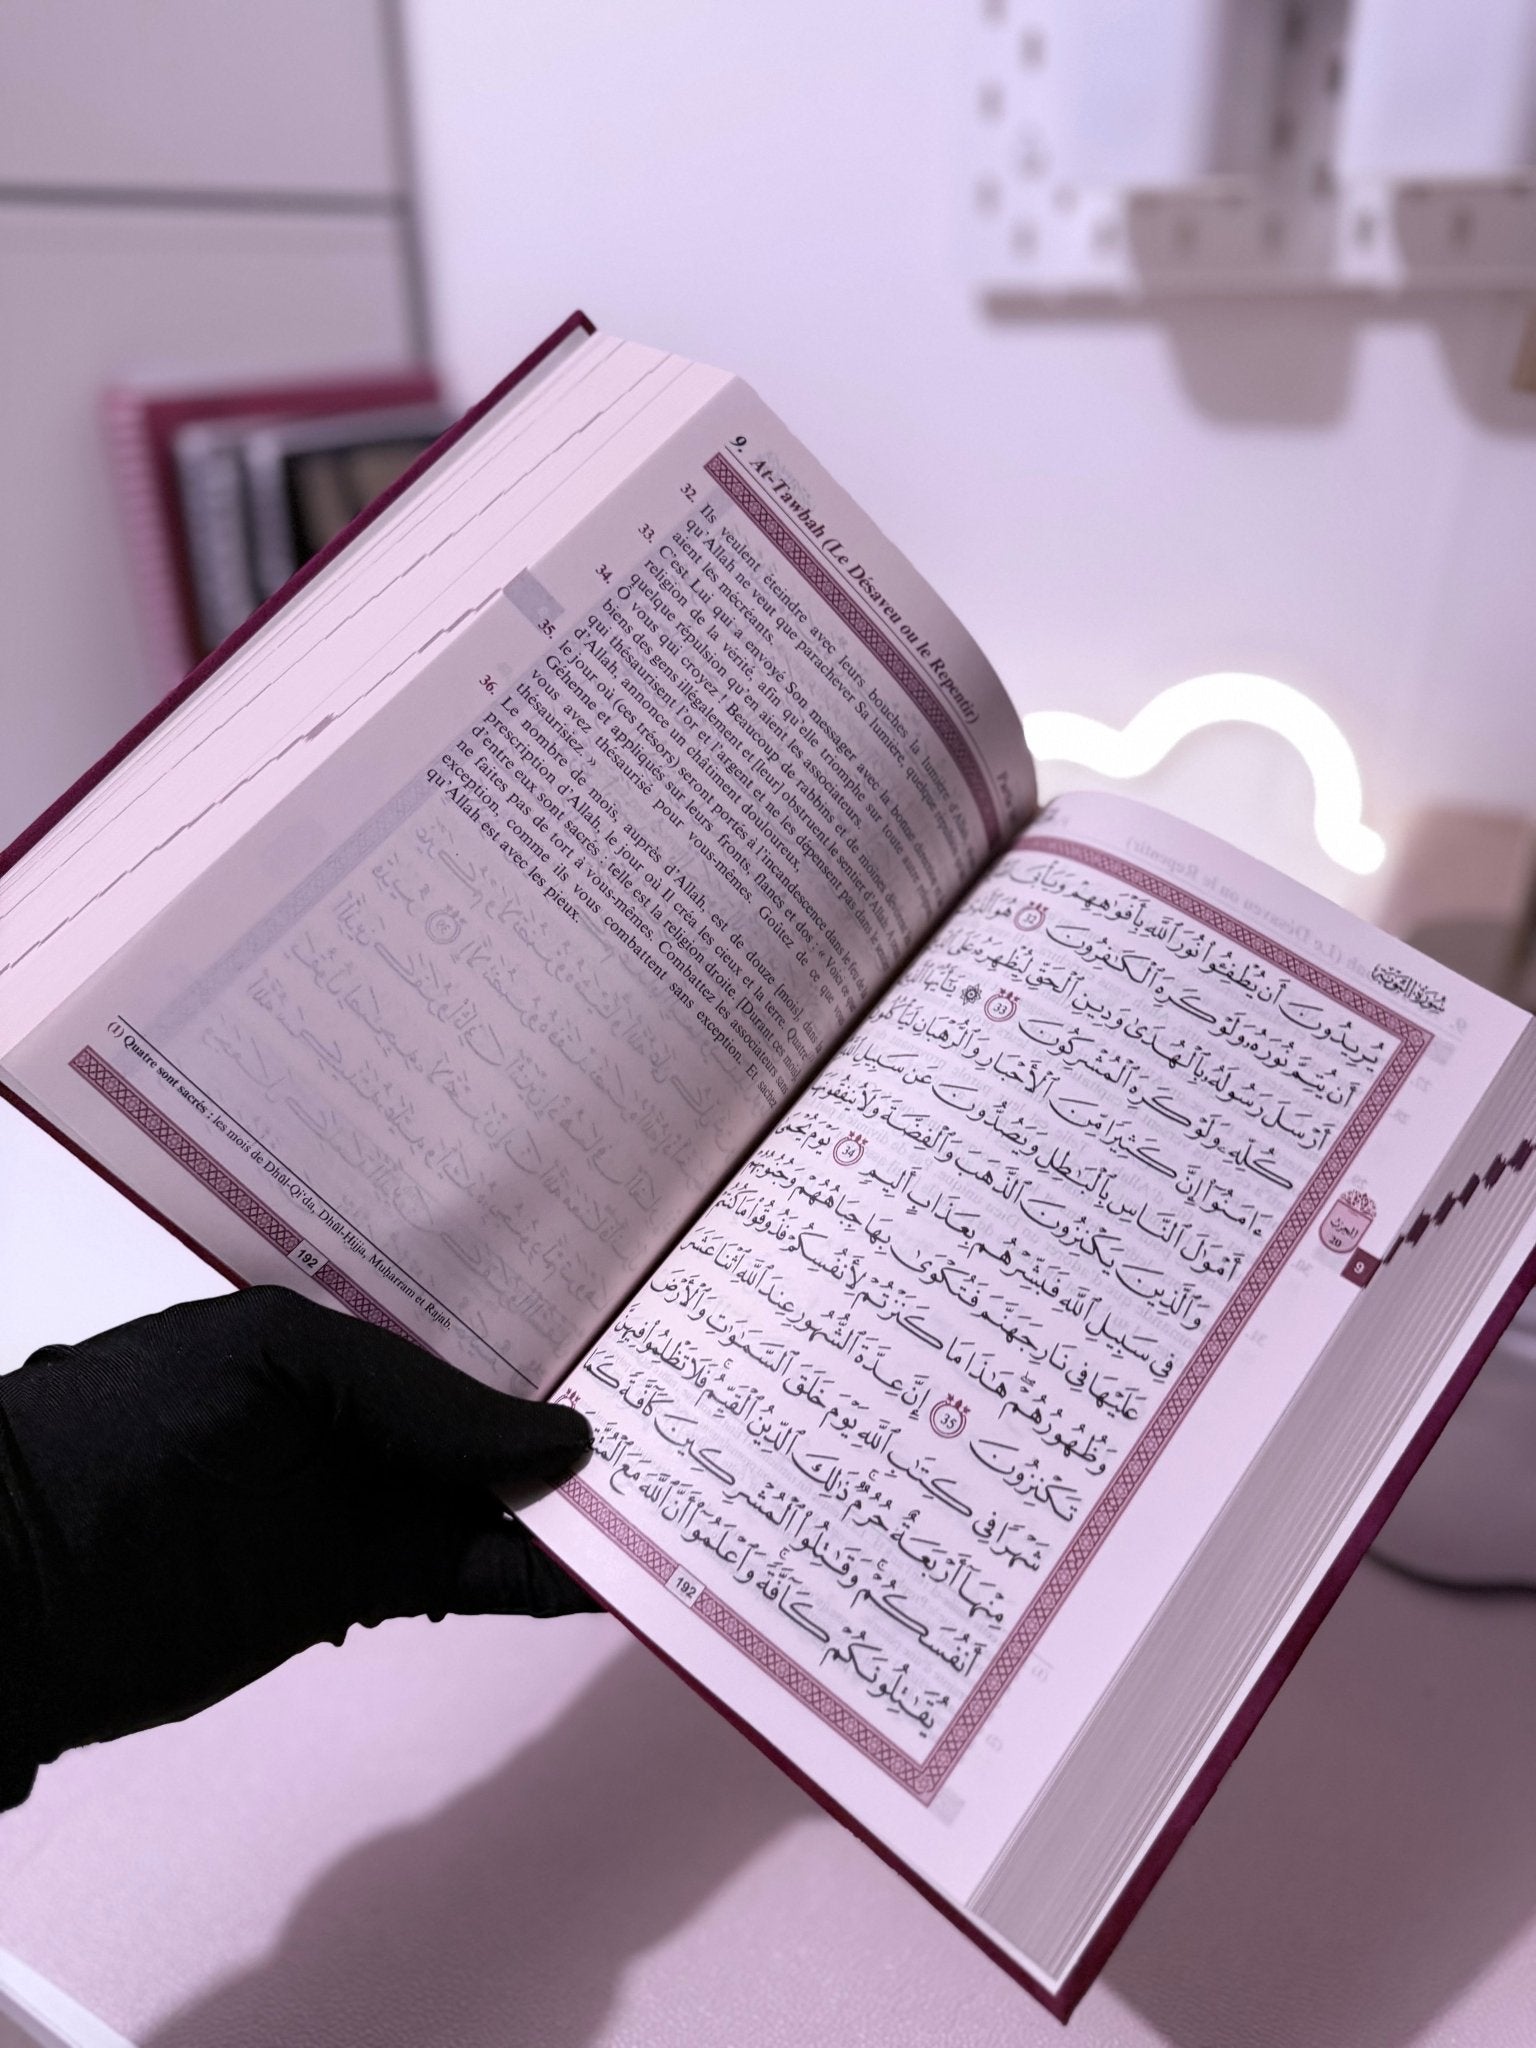 9. At-Tawbah (Le Désaveu ou le Repentir)
32. Ils veulent éteindre avec leurs bouches la lumière d'Allah,
qu'Allah ne veut que parachever Sa lumière, quelque
aient les mécréants.
33. C'est Lui qui a envoyé Son messager avec la bonne
religion de la vérité, afin qu'elle triomphe sur toute autre
quelque répulsion qu'en aient les associateurs.
34. O vous qui croyez ! Beaucoup de rabbins et de moines
biens des gens illégalement et [leur] obstruent le sentier d'Allah.
qui thésaurisent l'or et l'argent et ne les dépensent pas dans le
d'Allah, annonce un châtiment douloureux,
35. le jour où (ces trésors) seront portés à l'incandescence dans le feu de
Géhenne et appliqués sur leurs fronts, flancs et dos : « Voici ce que
vous avez thésaurisé pour vous-mêmes. Goûtez de ce que
thésaurisiez. »
36. Le nombre de mois, auprès d'Allah, est de douze [mois], dans
prescription d'Allah, le jour où Il créa les cieux et la terre. Quatre
d'entre eux sont sacrés : telle est la religion droite. [Durant ces mois]
ne faites pas de tort à vous-mêmes. Combattez les associateurs sans
exception, comme ils vous combattent sans exception. Et sachez
qu'Allah est avec les pieux.
(1) Quatre sont sacrés : les mois de Dhûl-Qi'da, Dhûl-Ḥijja, Muḥarram et Rajab.
192
سُورَةُ التَّوْبَةِ
يُرِيدُونَ أَن يُطْفِـُٔوا۟ نُورَ ٱللَّهِ بِأَفْوَٰهِهِمْ وَيَأْبَى
أَن يُتِمَّ نُورَهُۥ وَلَوْ كَرِهَ ٱلْكَـٰفِرُونَ 32 هُوَ ٱلَّذِىٓ
أَرْسَلَ رَسُولَهُۥ بِٱلْهُدَىٰ وَدِينِ ٱلْحَقِّ لِيُظْهِرَهُۥ عَلَى
كُلِّهِۦ وَلَوْ كَرِهَ ٱلْمُشْرِكُونَ 33 ۞ يَـٰٓأَيُّهَا ٱلَّذِينَ
ءَامَنُوٓا۟ إِنَّ كَثِيرًا مِّنَ ٱلْأَحْبَارِ وَٱلرُّهْبَانِ لَيَأْكُلُونَ
أَمْوَٰلَ ٱلنَّاسِ بِٱلْبَـٰطِلِ وَيَصُدُّونَ عَن سَبِيلِ ٱللَّهِ
وَٱلَّذِينَ يَكْنِزُونَ ٱلذَّهَبَ وَٱلْفِضَّةَ وَلَا يُنفِقُونَهَا
فِى سَبِيلِ ٱللَّهِ فَبَشِّرْهُم بِعَذَابٍ أَلِيمٍ 34 يَوْمَ يُحْمَىٰ
عَلَيْهَا فِى نَارِ جَهَنَّمَ فَتُكْوَىٰ بِهَا جِبَاهُهُمْ وَجُنُوبُهُمْ
وَظُهُورُهُمْ هَـٰذَا مَا كَنَزْتُمْ لِأَنفُسِكُمْ فَذُوقُوا۟ مَا كُنتُمْ
تَكْنِزُونَ 35 إِنَّ عِدَّةَ ٱلشُّهُورِ عِندَ ٱللَّهِ ٱثْنَا عَشَرَ
شَهْرًا فِى كِتَـٰبِ ٱللَّهِ يَوْمَ خَلَقَ ٱلسَّمَـٰوَٰتِ وَٱلْأَرْضَ
مِنْهَآ أَرْبَعَةٌ حُرُمٌ ۚ ذَٰلِكَ ٱلدِّينُ ٱلْقَيِّمُ ۚ فَلَا تَظْلِمُوا۟ فِيهِنَّ
أَنفُسَكُمْ ۚ وَقَـٰتِلُوا۟ ٱلْمُشْرِكِينَ كَآفَّةً كَمَا
يُقَـٰتِلُونَكُمْ كَآفَّةً ۚ وَٱعْلَمُوٓا۟ أَنَّ ٱللَّهَ مَعَ ٱلْمُتَّقِينَ
الحزب
20
9
192